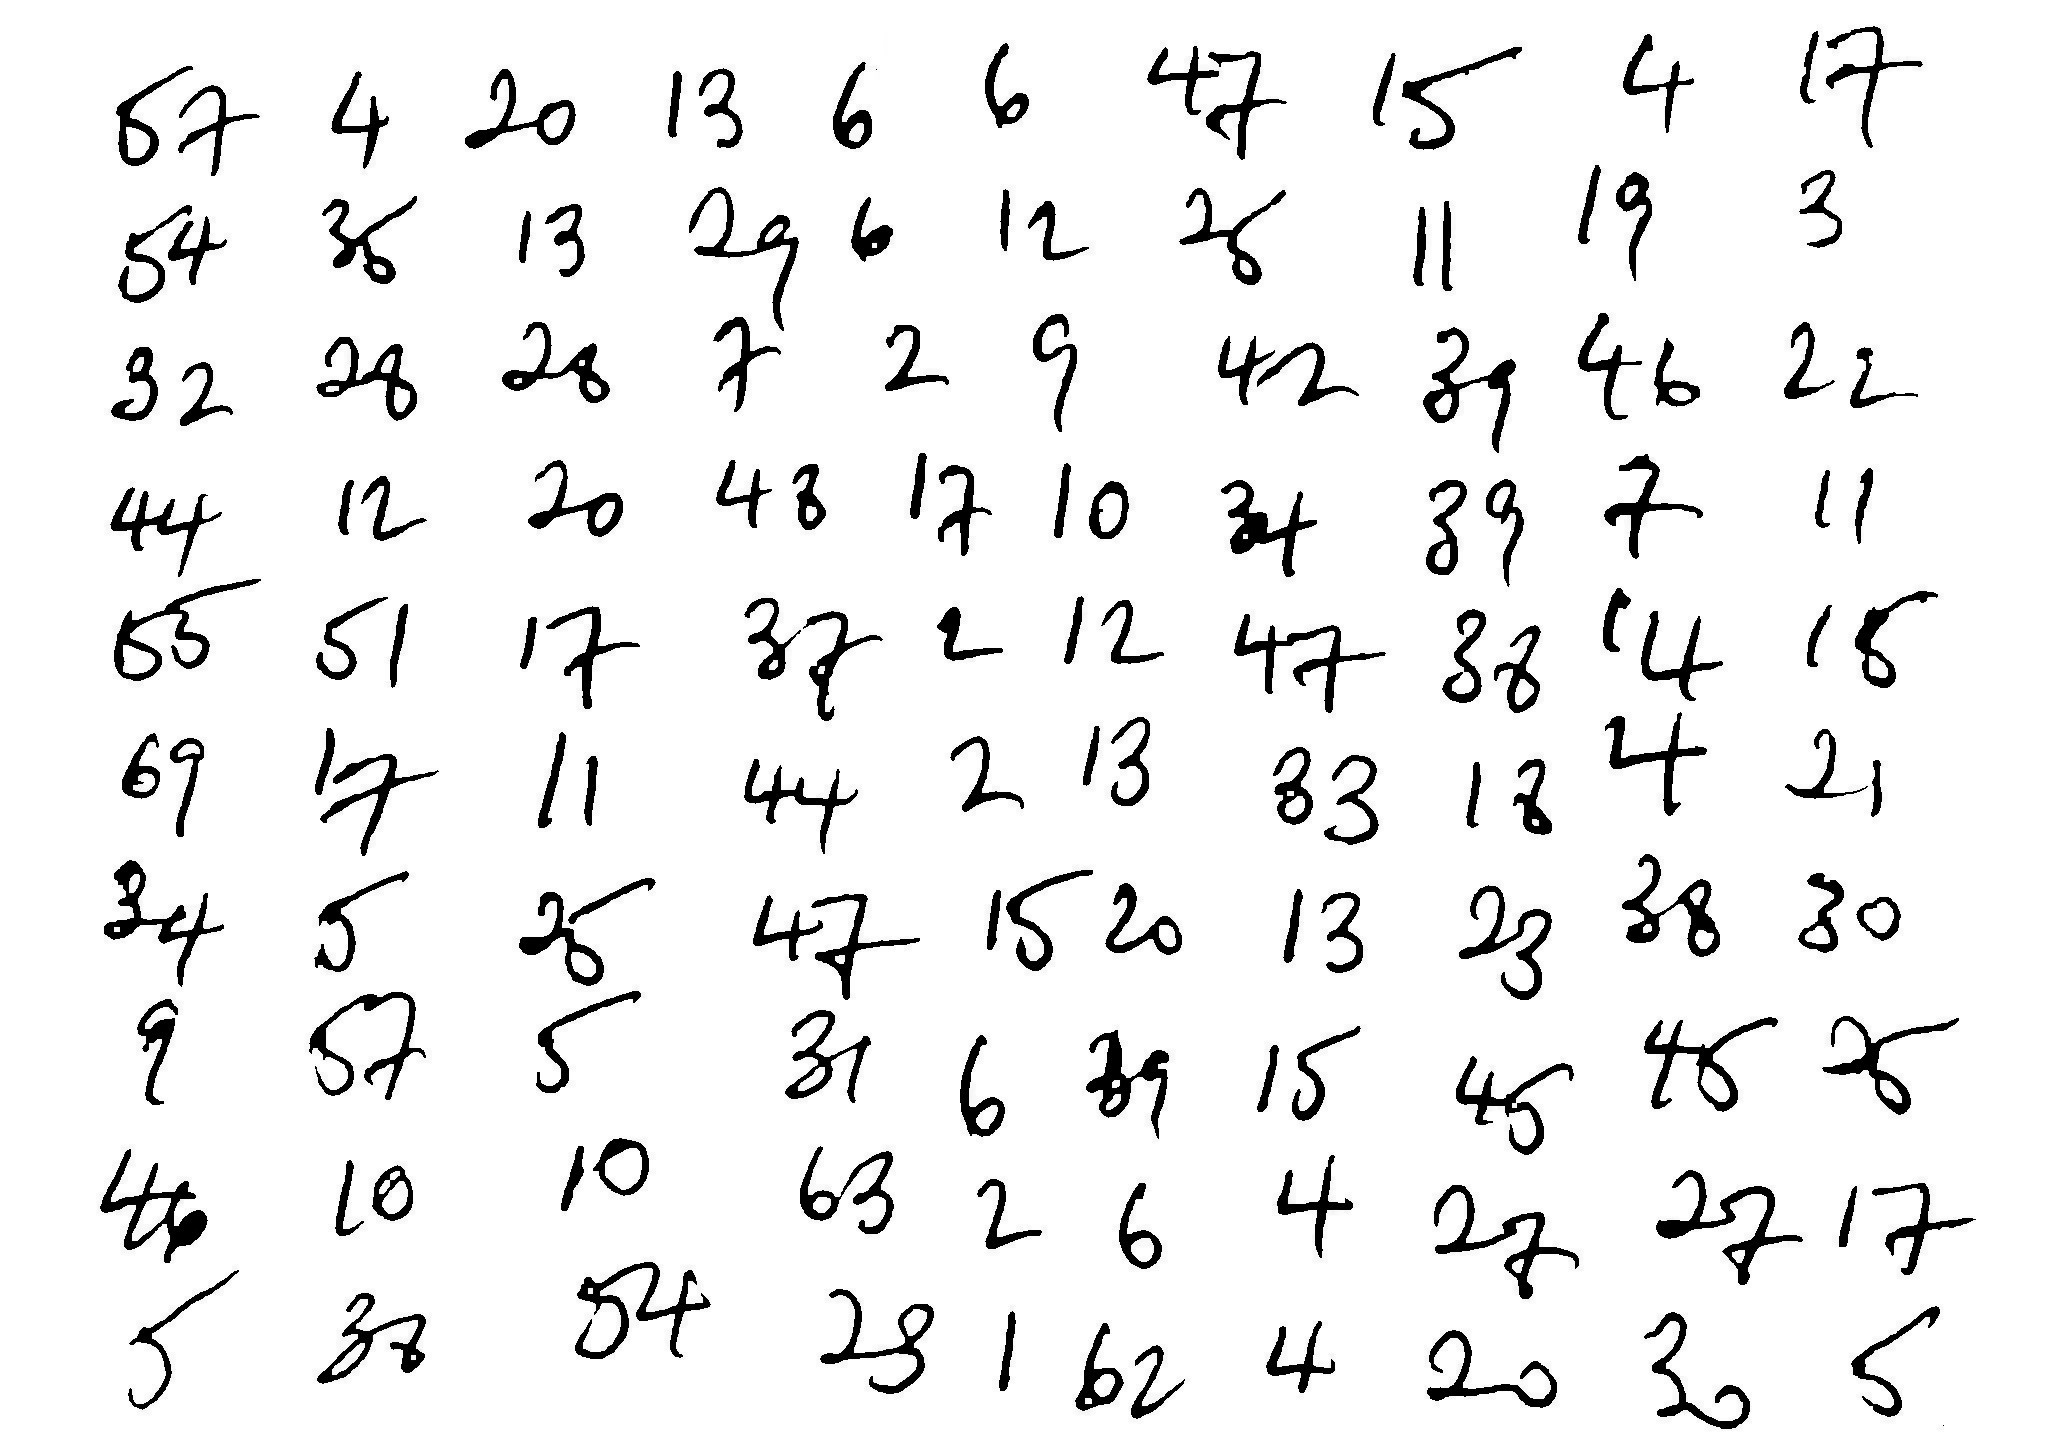 57 4 20 13 6 6 47 15 4 17
54 35 13 29 6 12 25 11 19 3
32 28 28 7 2 9 42 39 46 22
44 12 20 48 17 10 34 39 7 11
55 51 17 37 2 12 47 38 14 18
69 17 11 44 2 13 33 18 4 21
34 5 25 47 15 20 13 23 38 30
9 57 5 31 6 39 15 45 45 25
46 10 10 63 2 6 4 27 27 17
5 38 54 28 1 62 4 20 30 5